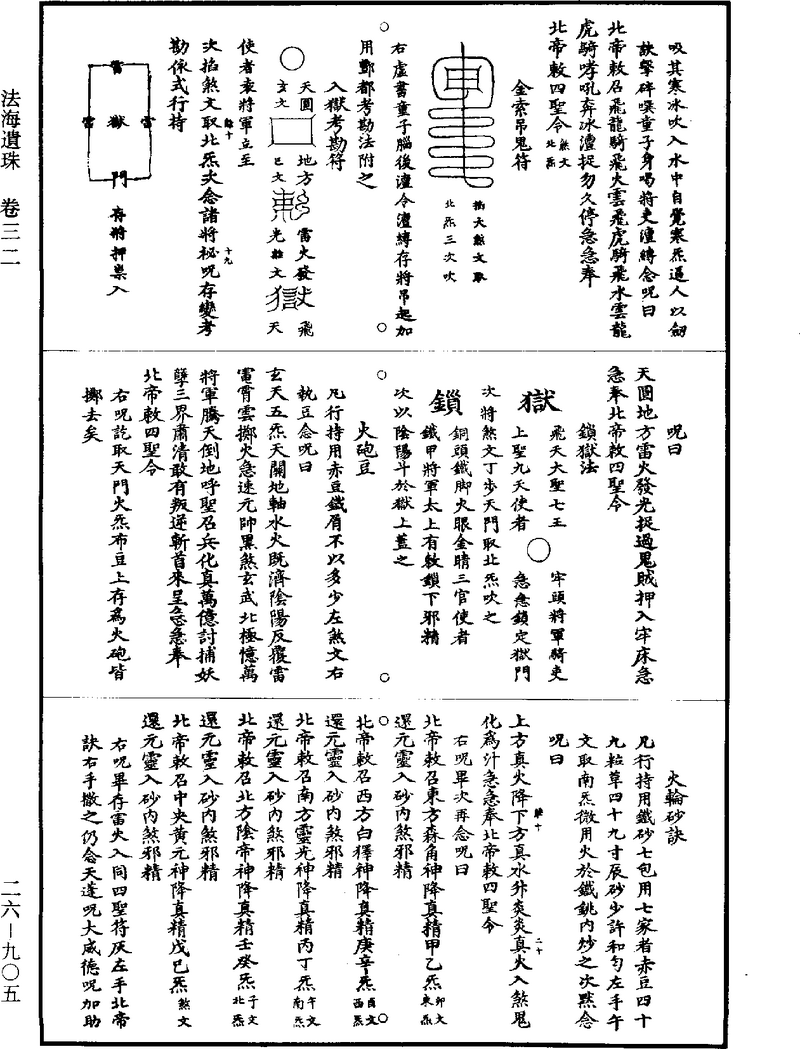 吸其寒冰吹入水中自覺寒炁逼人以劍
訣擊碎噀童子身喝將吏澶縛念呪曰
北帝敕召飛龍騎飛火雲飛虎騎飛水雲龍
虎騎哮吼奔冰澶捉勿久停急急奉
北帝敕四聖令 煞文 北炁
金索吊鬼符
掐大煞文取
北炁三次吹
右虛書童子腦後澶令澶縛存將吊起加
用酆都考勘法附之
入獄考勘符
天圓 地方 雷火發 飛
玄文 巳文 光 雒文 天
使者表將軍立至
次掐煞文取北炁次念諸將秘呪存變考
勘依式行持
雷 雷 獄 雷 門
存將押祟入
餘十
十九
呪曰
天圓地方雷火發光捉過鬼賊押入牢床急
急奉北帝敕四聖令
鎖獄法
獄
飛天大聖七王 牢頭將軍騎吏
上聖九天使者 急急鎖定獄門
次將煞文丁步天門取北炁吹之
鎖
銅頭鐵脚火眼金睛三官使者
鐵甲將軍太上有敕鎖下邪精
次以陰陽斗於獄上蓋之
火砲豆
凡行持用赤豆鐵屑不以多少左煞文右
執豆念呪曰
玄天五炁天關地軸水火既濟陰陽反覆雷
電霄雲擲火急速元帥黑煞玄武北極億萬
將軍騰天倒地呼聖召兵化真萬億討捕妖
孽三界肅清敢有叛逆斬首來呈急急奉
北帝敕四聖令
右呪訖取天門火炁布豆上存爲火砲皆
擲去矣
火輪砂訣
凡行持用鐵砂七包用七家者赤豆四十
九粒草四十九寸辰砂少許和勻左手午
文取南炁微用火於鐵銚內炒之次黙念
呪曰
上方真火降下方真水升炎炎真火入煞鬼
化爲汁急急奉北帝敕四聖令
餘十
二十
右呪畢次再念呪曰
北帝敕召東方森角神降真精甲乙炁 卯文 東炁
還元靈入砂內煞邪精
北帝敕召西方白獰神降真精庚辛炁 酉文 西炁
還元靈入砂內煞邪精
北帝敕召南方靈光神降真精丙丁炁 午文 南炁
還元靈入砂內煞邪精
北帝敕召北方陰帝神降真精壬癸炁 子文 北炁
還元靈入砂內煞邪精
北帝敕召中央黃元神降真精戊巳炁 煞文
還元靈入砂內煞邪精
右呪畢存雷火入同四聖符灰左手北帝
訣右手撒之仍念天蓬呪大威德呪加助
法海遺珠 卷三二
二六—九〇五